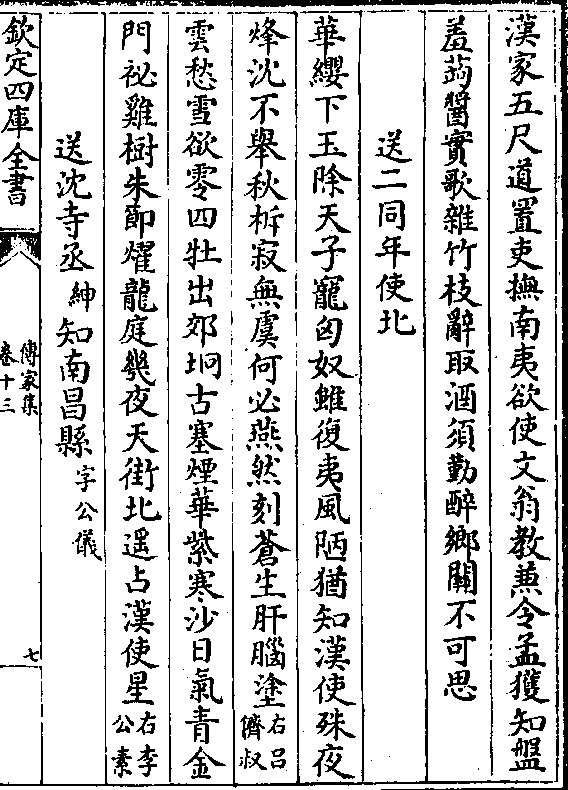 漢家五尺道置吏撫南夷欲使文翁教兼令孟獲知盤
羞蒟醬實歌雜竹枝辭取酒須勤醉鄉關不可思
送二同年使北
華纓下玉除天子寵匈奴雖復夷風陋猶知漢使殊夜
烽沈不舉秋柝寂無虞何必燕然刻蒼生肝腦塗右吕儕叔
雲愁雪欲零四牡出郊坰古塞煙華紫寒沙日氣青金
門祕雞樹朱節燿龍庭幾夜天街北遥占漢使星右李公素
送沈寺丞紳知南昌縣字公儀
欽定四庫全書
傳家集
卷十三
七